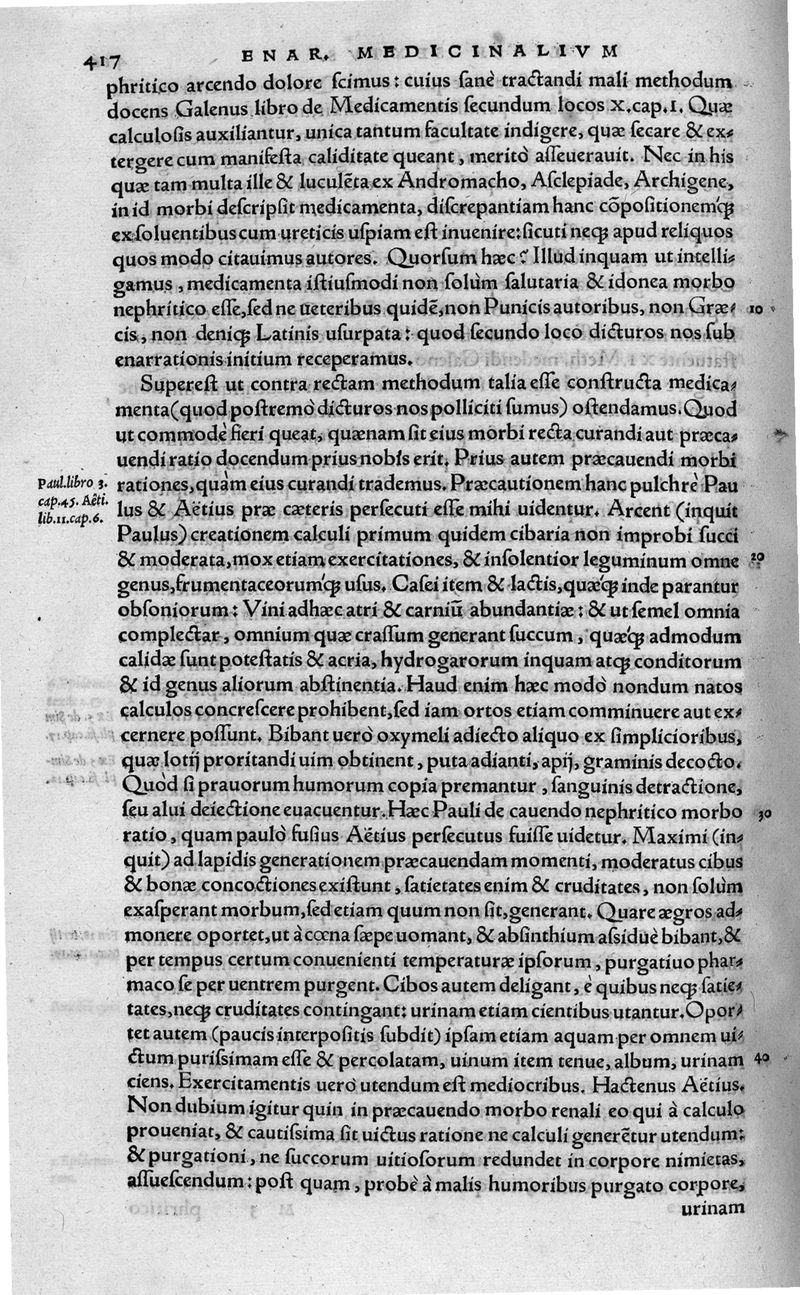 417 ENAR. MEDICINALIVM
phritico arcendo dolore ſcimus: cuius ſanè tractandi mali methodum
docens Galenus libro de Medicamentis ſecundum locos X.cap.1. Quæ
calculoſis auxiliantur, unica tantum facultate indigere, quæ ſecare & ex-
tergere cum manifeſta caliditate queant, meritò aſſeuerauit. Nec in his
quæ tam multa ille & luculẽta ex Andromacho, Aſclepiade, Archigene,
in id morbi deſcripſit medicamenta, diſcrepantiam hanc cõpoſitionemq́ꝫ
exſoluentibus cum ureticis uſpiam eſt inuenire: ſicuti neqꝫ apud reliquos
quos modo citauimus autores. Quorſum hæc? Illud inquam ut intelli-
gamus, medicamenta iſtiuſmodi non ſolùm ſalutaria & idonea morbo
nephritico eſſe, ſed ne ueteribus quidẽ, non Punicis autoribus, non Græ- 10
cis, non deniqꝫ Latinis uſurpata: quod ſecundo loco dicturos nos ſub
enarrationis initium receperamus.
Supereſt ut contra rectam methodum talia eſſe conſtructa medica-
menta (quod poſtremò dicturos nos polliciti ſumus) oſtendamus. Quod
ut commodè fieri queat, quænam ſit eius morbi recta curandi aut præca-
uendi ratio docendum prius nobis erit. Prius autem præcauendi morbi
Paul.libro 3.
cap.45. Aëti.
lib.11.cap.6.
rationes, quàm eius curandi trademus. Præcautionem hanc pulchrè Pau
lus & Aëtius præ cæteris perſecuti eſſe mihi uidentur. Arcent (inquit
Paulus) creationem calculi primum quidem cibaria non improbi ſucci
& moderata, mox etiam exercitationes, & inſolentior leguminum omne 20
genus, frumentaceorumq́ꝫ uſus. Caſei item & lactis, quæq́ꝫ inde parantur
obſoniorum: Vini adhæc atri & carniũ abundantiæ: & ut ſemel omnia
complectar, omnium quæ craſſum generant ſuccum, quæq́ꝫ admodum
calidæ ſunt poteſtatis & acria, hydrogarorum inquam atqꝫ conditorum
& id genus aliorum abſtinentia. Haud enim hæc modò nondum natos
calculos concreſcere prohibent, ſed iam ortos etiam comminuere aut ex-
cernere poſſunt. Bibant uerò oxymeli adiecto aliquo ex ſimplicioribus,
quæ lotij proritandi uim obtinent, puta adianti, apij, graminis decocto.
Quòd ſi prauorum humorum copia premantur, ſanguinis detractione,
ſeu alui deiectione euacuentur. Hæc Pauli de cauendo nephritico morbo 30
ratio, quam paulò fuſius Aëtius perſecutus fuiſſe uidetur. Maximi (in-
quit) ad lapidis generationem præcauendam momenti, moderatus cibus
& bonæ concoctiones exiſtunt, ſatietates enim & cruditates, non ſolùm
exaſperant morbum, ſed etiam quum non ſit, generant. Quare ægros ad-
monere oportet, ut à cœna ſæpe uomant, & abſinthium aſsiduè bibant, &
per tempus certum conuenienti temperaturæ ipſorum, purgatiuo phar-
maco ſe per uentrem purgent. Cibos autem deligant, è quibus neqꝫ ſatie-
tates, neqꝫ cruditates contingant: urinam etiam cientibus utantur. Opor-
tet autem (paucis interpoſitis ſubdit) ipſam etiam aquam per omnem ui-
ctum puriſsimam eſſe & percolatam, uinum item tenue, album, urinam 40
ciens. Exercitamentis uerò utendum eſt mediocribus. Hactenus Aëtius.
Non dubium igitur quin in præcauendo morbo renali eo qui à calculo
proueniat, & cautiſsima ſit uictus ratione ne calculi generẽtur utendum:
& purgationi, ne ſuccorum uitioſorum redundet in corpore nimietas,
aſſueſcendum: poſt quam, probè à malis humoribus purgato corpore,
urinam